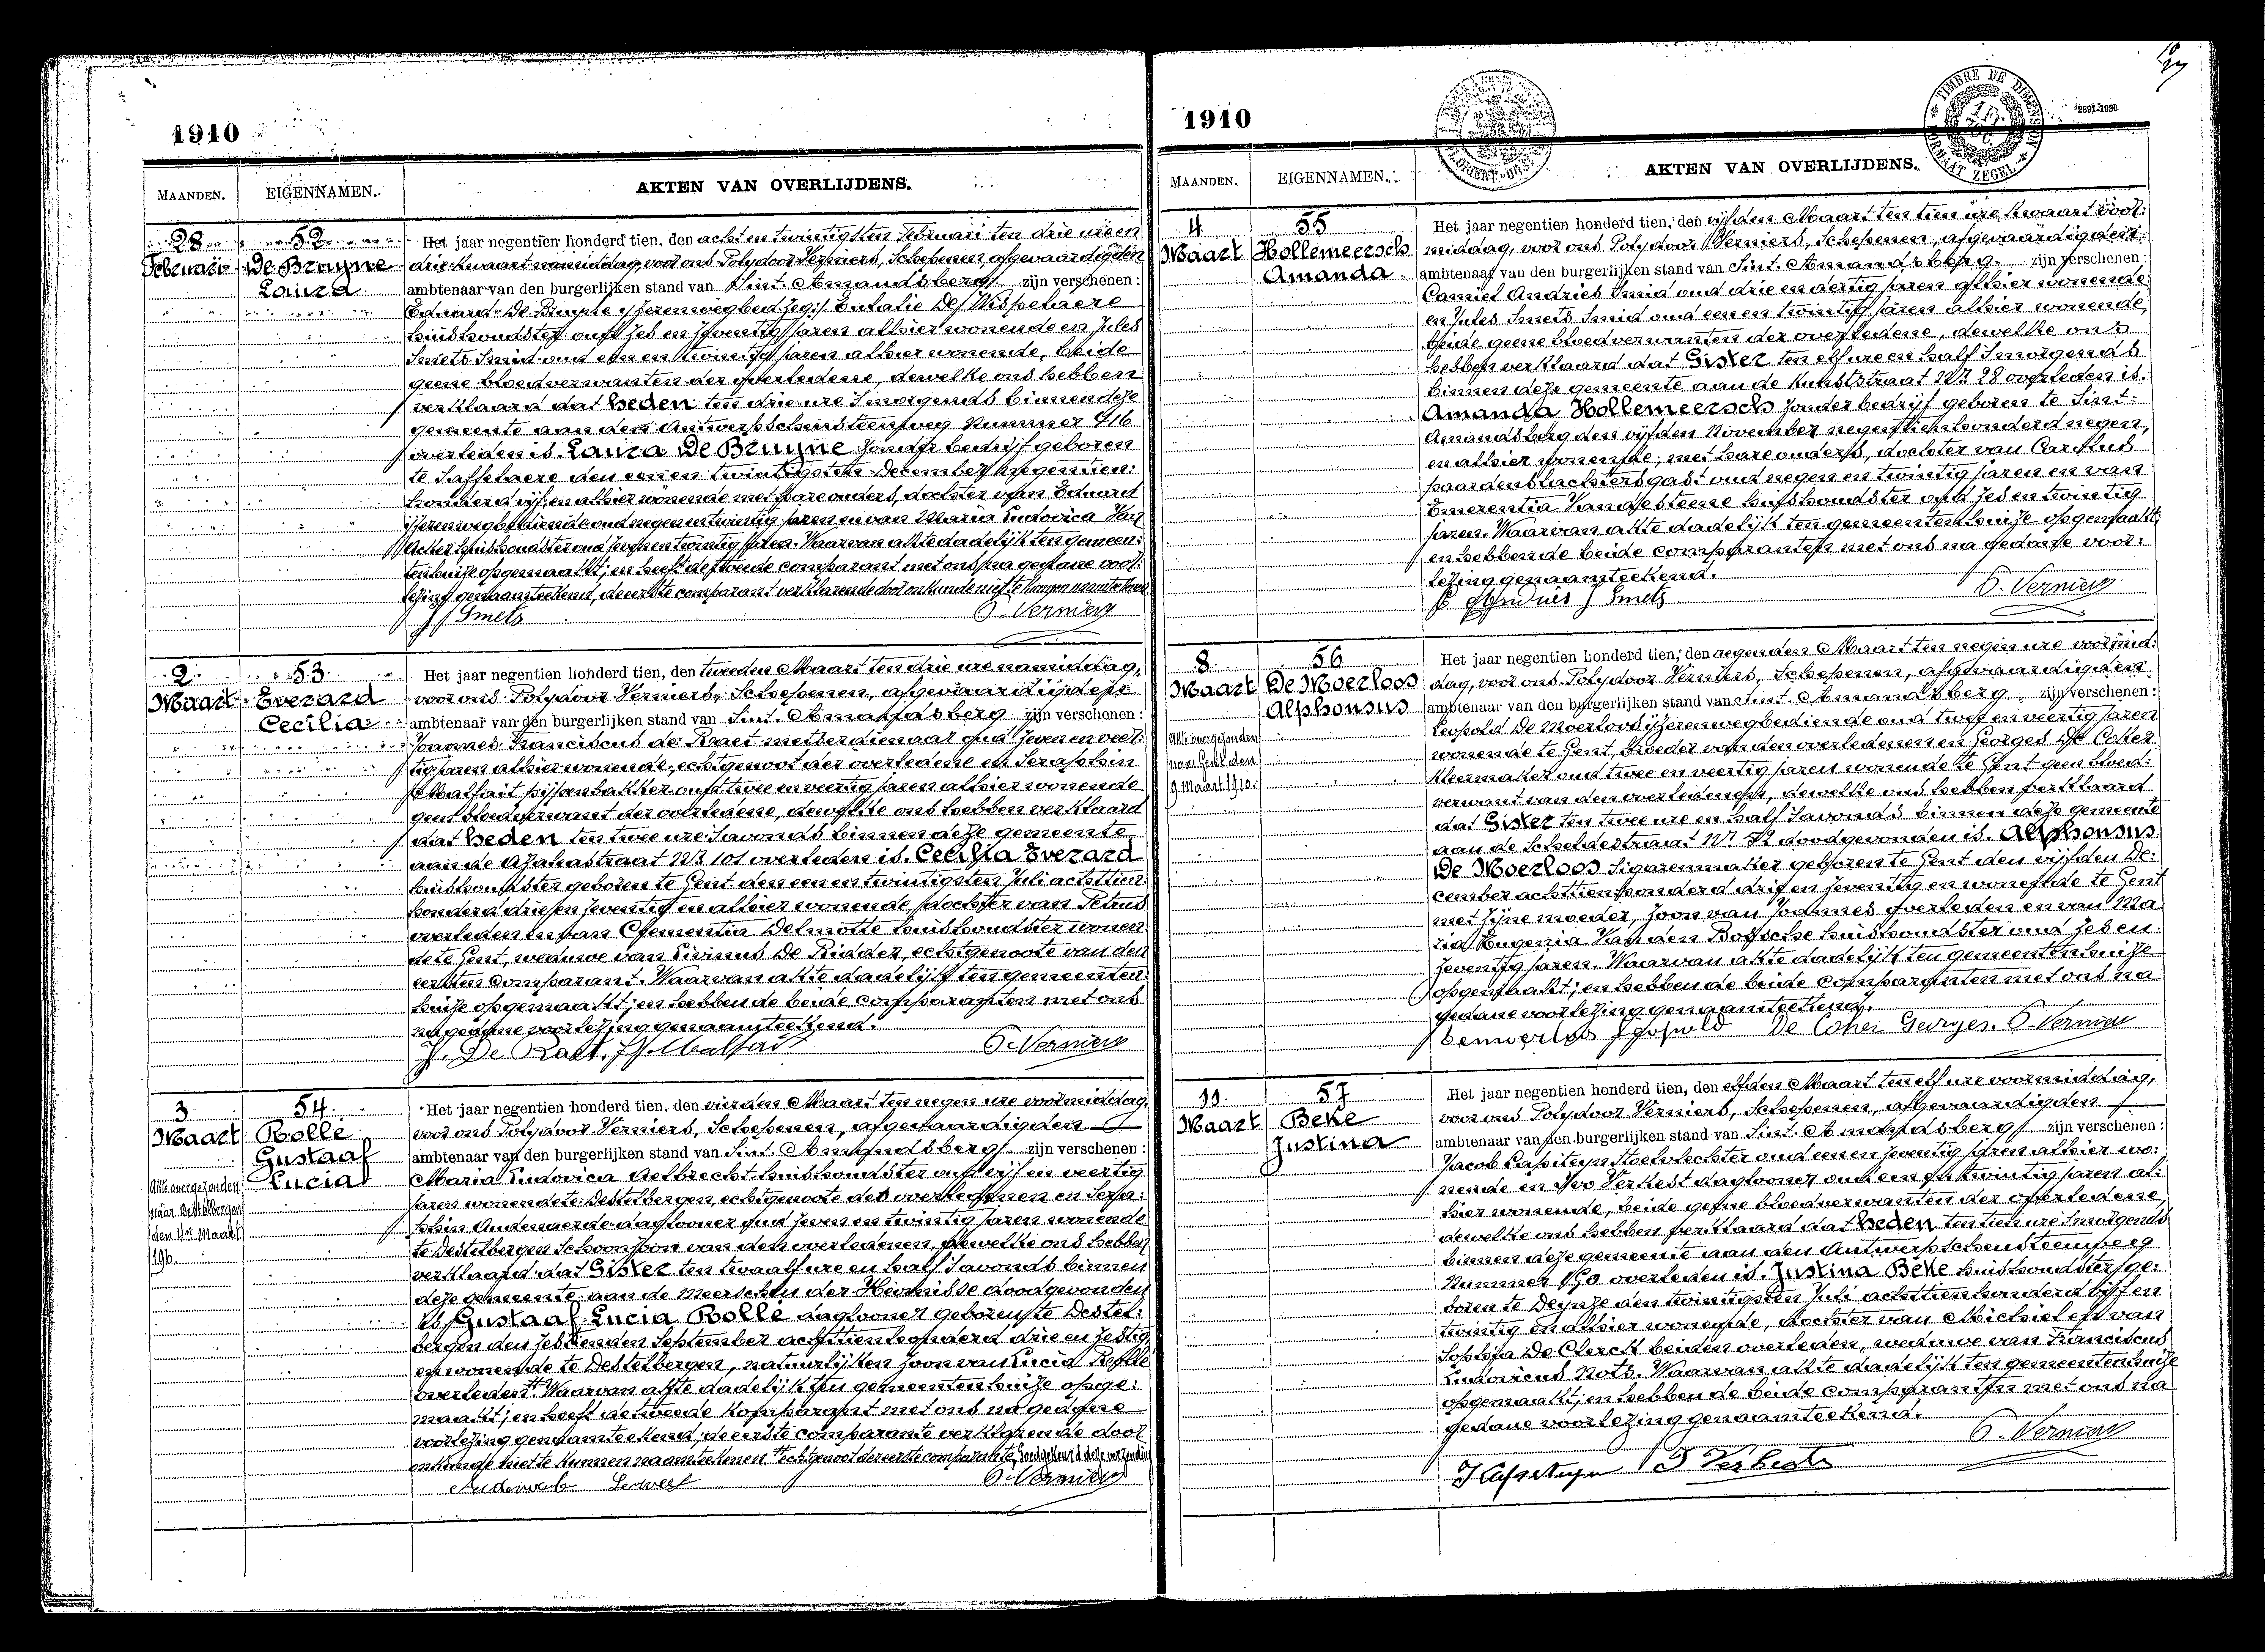 1910
MAANDEN. EIGENNAMEN. AKTEN VAN OVERLIJDENS.
28 Februari
52
De Bruyne
Laura
Het jaar negentien honderd tien, den acht en twintigsten Februari ten drie ure en
drie kwaart namiddag, voor ons Polydoor Verniers, Schepenen, afgevaardigden
ambtenaar van den burgerlijken stand van Sint-Amandsberg zijn verschenen:
Eduard De Bruyne ijzerenwegbed Eulalie De Wispelaere
huishoudster oud zes en zeventig jaren alhier wonende en Jules
Smets Smid oud een en twintig jaren alhier wonende, beide
geene bloedverwanten der overledene, dewelke ons hebben
verklaard dat heden ten drie ure Smorgends binnen deze
gemeente aan den Antwerpschensteenweg Nummer 416
overleden is Laura De Bruyne zonder bedrijf geboren
te Saffelaere den een en twintigsten December negentien:
honderd vijf en alhier wonende met hare ouders, dochter van Eduard
ijzerenwegbediende oud negen en twintig jaren en van Maria Ludovica Van
Acker huishoudster oud zeven en twintig jaren. Waarvan akte dadelijk ten gemeen:
tenhuize opgemaakt; en heeft de tweede comparant met ons na gedane voor:
lezing genaamteekend, de eerste comparant verklarende door onkunde niet te kunnen naamteekenen
J Smets P. Verniers
2 Maart
53
Everard
Cecilia
Het jaar negentien honderd tien, den tweeden Maart ten drie ure namiddag,
voor ons Polydoor Verniers, Schepenen, afgevaardigden
ambtenaar van den burgerlijken stand van Sint-Amandsberg zijn verschenen:
Joannes Franciscus de Raet metserdienaar oud zeven en veer:
tig jaren alhier wonende, echtgenoot der overledene en Seraphin
Malfait pijpenbakker oud twee en veertig jaren alhier wonende
geen bloedverwant der overledene, dewelke ons hebben verklaard
dat heden ten twee ure Savonds binnen deze gemeente
aan de Azaleastraat Nr 101 overleden is. Cecilia Everard
huishoudster geboren te Gent den een en twintigsten Juli achttien
honderd drie en zeventig en alhier wonende dochter van Petrus
overleden en van Clementia Delmotte huishoudster wonen
de te Gent, weduwe van Livinus De Ridder, echtgenoote van den
eersten comparant. Waarvan akte dadelijk ten gemeenten
huize opgemaakt; en hebben de beide comparanten met ons
na gedane voorlezing genaamteekend.
J. De Raet. S Malfait P. Verniers
3 Maart
54
Rolle
Gustaaf
Lucia
Akte overgezonden
naar Destelbergen
den 4n Maart
1910
Het jaar negentien honderd tien, den vierden Maart ten negen ure voormiddag,
voor ons Polydoor Verniers, Schepenen, afgevaardigden
ambtenaar van den burgerlijken stand van Sint-Amandsberg zijn verschenen:
Maria Ludovica Aelbrecht huishoudster oud vijf en veertig
jaren wonende te Destelbergen, echtgenoote des overledenen en Sera:
phin Audenaerde daglooner oud zeven en twintig jaren wonende
te Destelbergen Schoonzoon van den overledenen, dewelke ons hebben
verklaard dat Gister ten twaalf ure en half Savonds binnen
deze gemeente aan de Meerschen der Heirnisse doodgevonden
is Gustaaf Lucia Rolle daglooner geboren te Destel:
bergen den zestienden September achttienhonderd drie en zestig
en wonende te Destelbergen, natuurlijken zoon van Lucia Rolle
overleden. Waarvan akte dadelijk ten gemeentenhuize opge:
maakt; en heeft de tweede Komparant met ons na gedane
voorlezing genaamteekend; de eerste comparante verklarende door
onkunde niet te kunnen naamteekenen. echtgenoot der eerste comparante, Goedgekeurd deze verzending
P. Verniers
1910
TIMBRE DE DIMENSION
FORMAAT ZEGEL
MAANDEN. EIGENNAMEN. AKTEN VAN OVERLIJDENS.
4 Maart
55
Hollemeersch
Amanda
Het jaar negentien honderd tien, den vijfden Maart ten tien ure kwaart voor:
middag, voor ons Polydoor Verniers, Schepenen, afgevaardigden
ambtenaar van den burgerlijken stand van Sint-Amandsberg zijn verschenen:
Camiel Andries Smid oud drie en dertig jaren alhier wonende
en Jules Smets Smid oud een en twintig jaren alhier wonende,
beide geene bloedverwanten der overledene, dewelke ons
hebben verklaard dat Gister ten elf ure en half Smorgends
binnen deze gemeente aan de Kunststraat Nr 28 overleden is.
Amanda Hollemeersch zonder bedrijf geboren te Sint:
Amandsberg den vijfden November negentienhonderd negen,
en alhier wonende, met hare ouders, dochter van Carolus
paardenslachtersgast oud negen en twintig jaren en van
Emerentia Vandesteene huishoudster oud zes en twintig
jaren. Waarvan akte dadelijk ten gemeentenhuize opgemaakt;
en hebben de beide comparanten met ons na gedane voor:
lezing genaamteekend.
C Andries J Smets P. Verniers
8 Maart
56
De Moerloos
Alphonsus
Akte overgezonden
naar Gent den
9 Maart 1910.
Het jaar negentien honderd tien, den negenden Maart ten negen ure voormid:
dag, voor ons Polydoor Verniers, Schepenen, afgevaardigden
ambtenaar van den burgerlijken stand van Sint-Amandsberg zijn verschenen:
Leopold De Moerloos ijzerenwegbediende oud twee en veertig jaren
wonende te Gent, broeder van den overledenen en Georges De Coker
kleermaker oud twee en veertig jaren wonende te Gent geen bloed:
verwant van den overledenen, dewelke ons hebben verklaard
dat Gister ten twee ure en half Savonds binnen deze gemeente
aan de Scheldestraat Nr 72 doodgevonden is. Alphonsus
De Moerloos Sigarenmaker geboren te Gent den vijfden De:
cember achttienhonderd drie en zeventig en wonende te Gent
met zijne moeder, zoon van Joannes overleden en van Ma
ria Eugenia Van den Bossche huishoudster oud zes en
zeventig jaren. Waarvan akte dadelijk ten gemeentenhuize
opgemaakt; en hebben de beide comparanten met ons na
gedane voorlezing genaamteekend.
Demoerloos Leopold De Coker Georges. P. Verniers
11 Maart
57
Beke
Justina
Het jaar negentien honderd tien, den elfden Maart ten elf ure voormiddag,
voor ons Polydoor Verniers, Schepenen, afgevaardigden
ambtenaar van den burgerlijken stand van Sint-Amandsberg zijn verschenen:
Jacob Capiteyn Stoelvlechter oud een en zeventig jaren alhier wo:
nende en Ivo Verkest daglooner oud een en twintig jaren al:
hier wonende, beide geene bloedverwanten der overledene,
dewelke ons hebben verklaard dat heden ten tien ure Smorgends
binnen deze gemeente aan den Antwerpschensteenweg
Nummer 190 overleden is. Justina Beke huishoudster ge:
boren te Deynze den twintigsten Juli achttienhonderd vijf en
twintig en alhier wonende, dochter van Michiel en van
Sophia De Clerck beiden overleden, weduwe van Franciscus
Ludovicus Nots. Waarvan akte dadelijk ten gemeentenhuize
opgemaakt; en hebben de beide comparanten met ons na
gedane voorlezing genaamteekend.
P. Verniers
J Capiteyn I Verkest